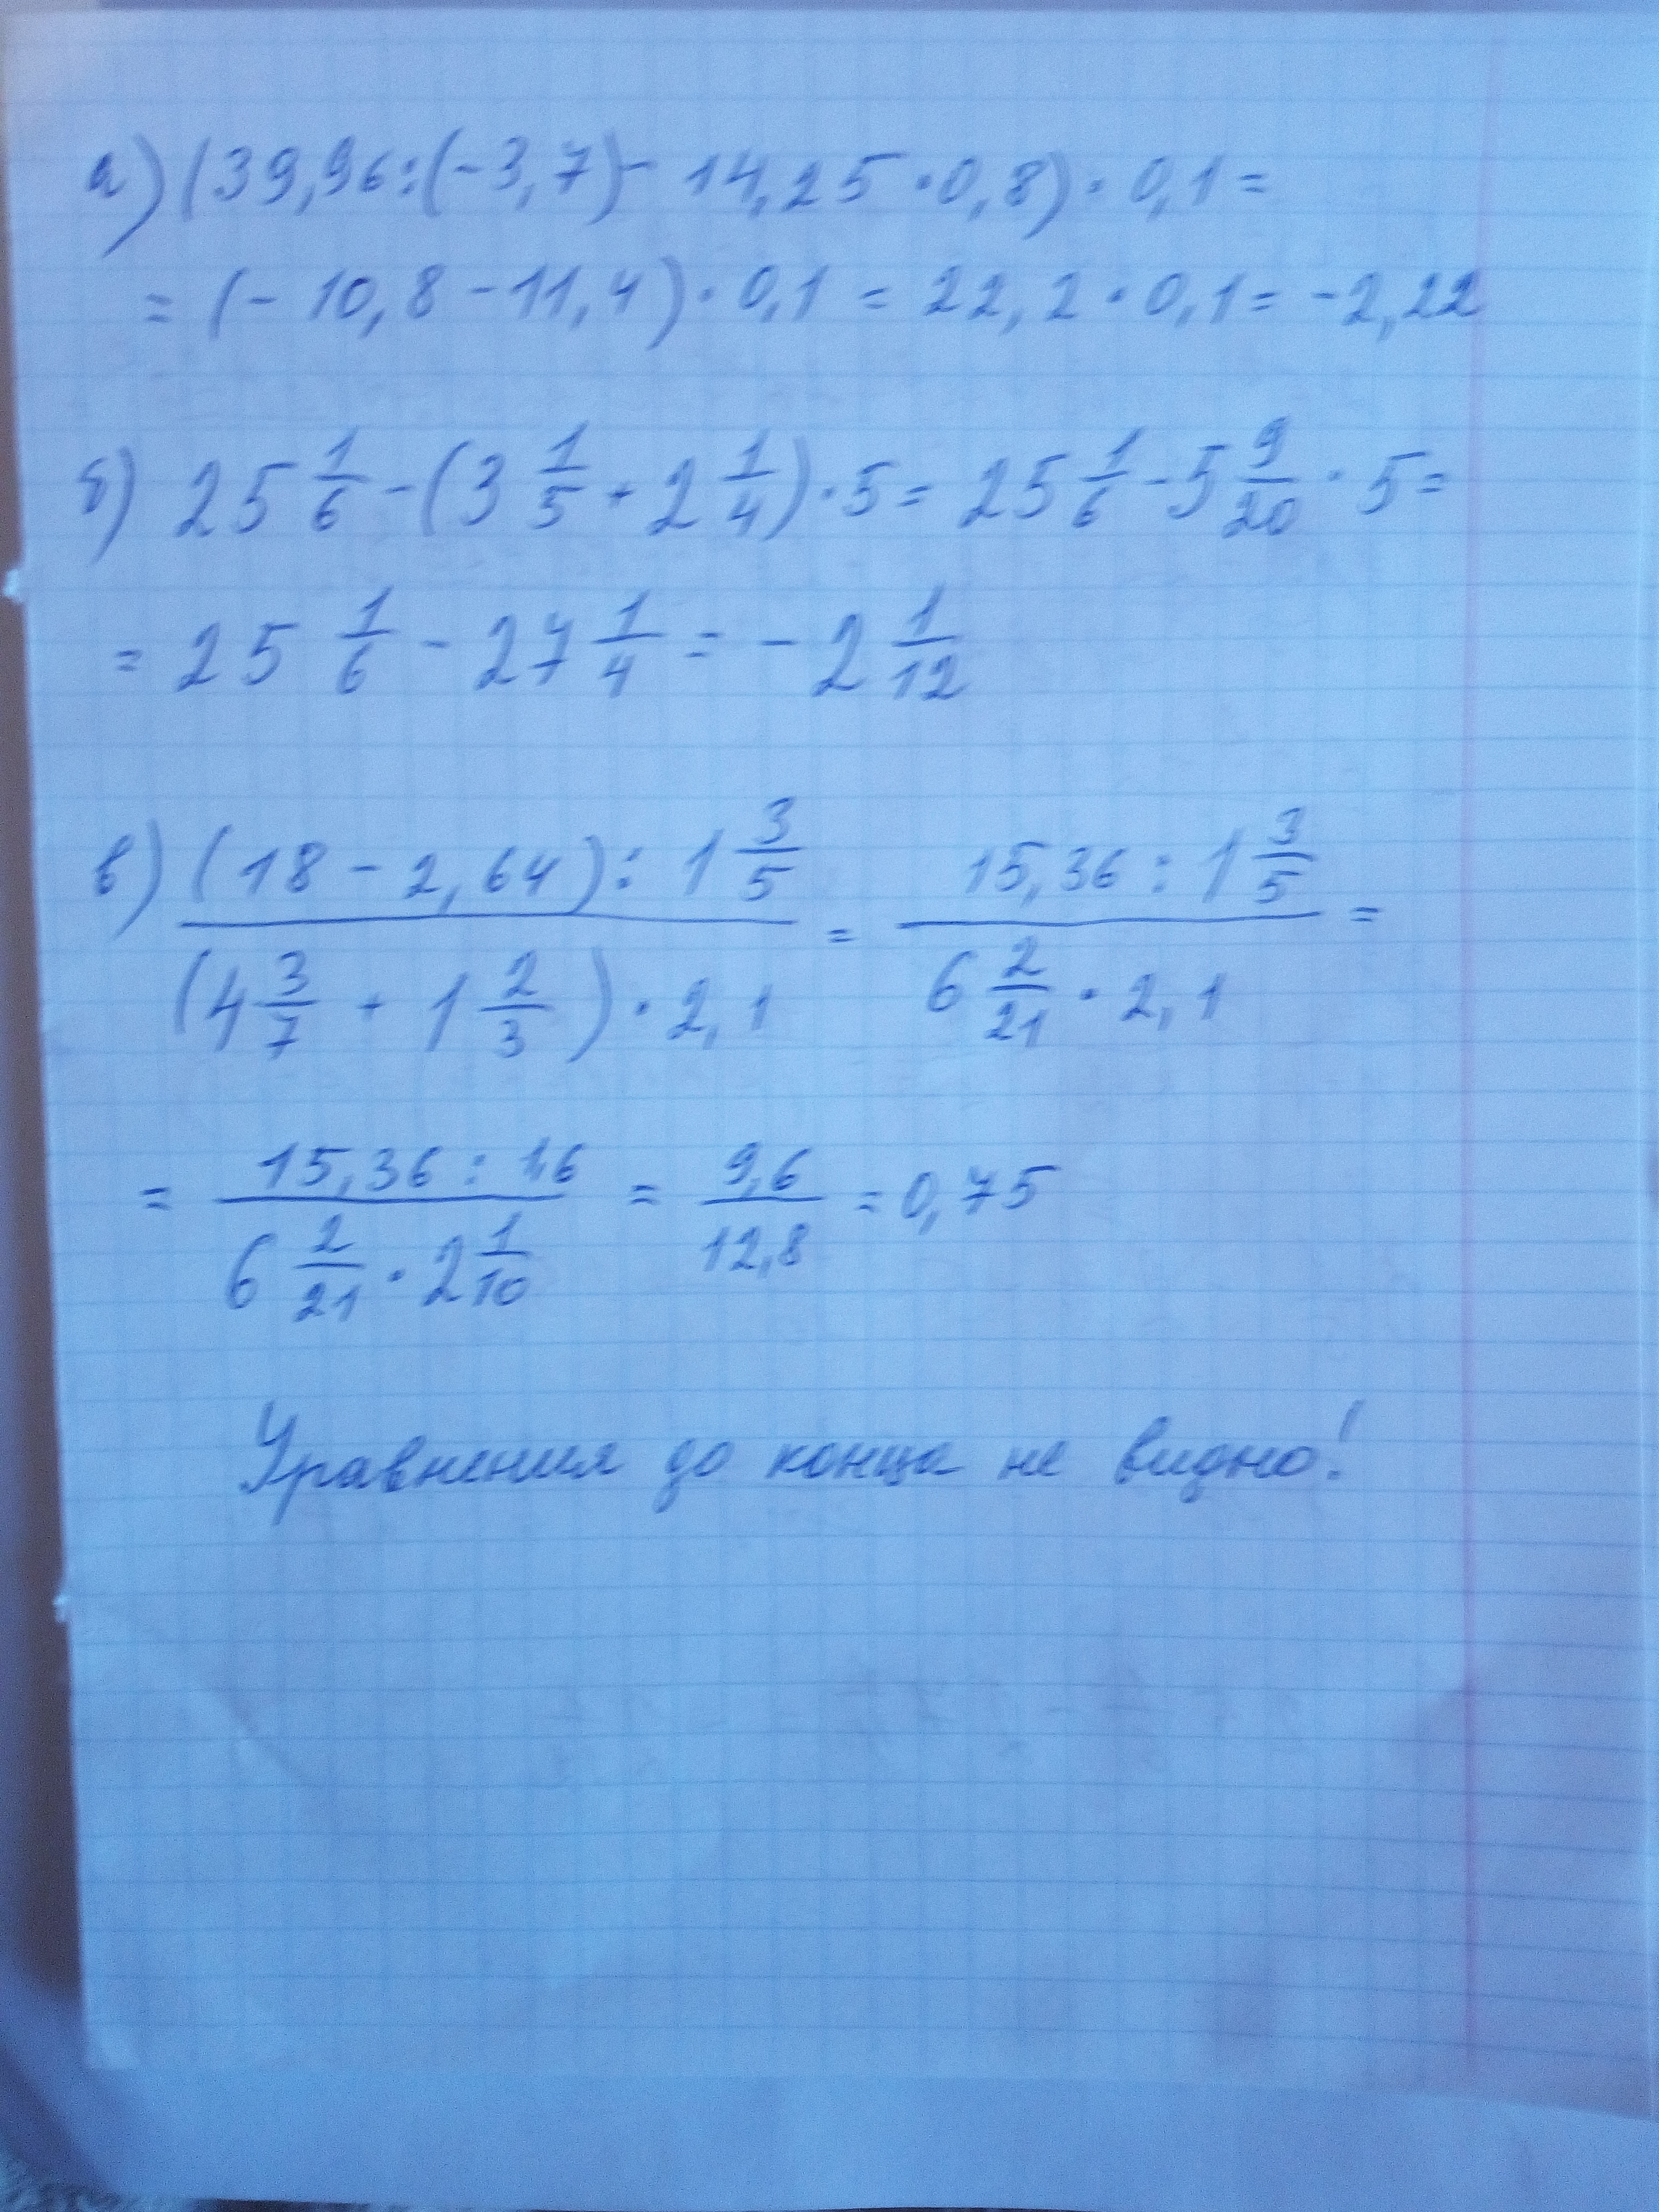 а) (39,96:(-3,7)- 14,25·0,8)·0,1=
= (- 10,8 - 11,4)·0,1 = 22,2·0,1= -2,22
б) 25 1/6 - (3 1/5 + 2 1/4)·5 = 25 1/6 - 5 9/20 · 5 =
= 25 1/6 - 27 1/4 = - 2 1/12
в) (18 - 2,64) : 1 3/5 / (4 3/7 + 1 2/3)·2,1 = 15,36 : 1 3/5 / 6 2/21 · 2,1 =
= 15,36 : 1,6 / 6 2/21 · 2 1/10 = 9,6 / 12,8 = 0,75
Уравнения до конца не видно!